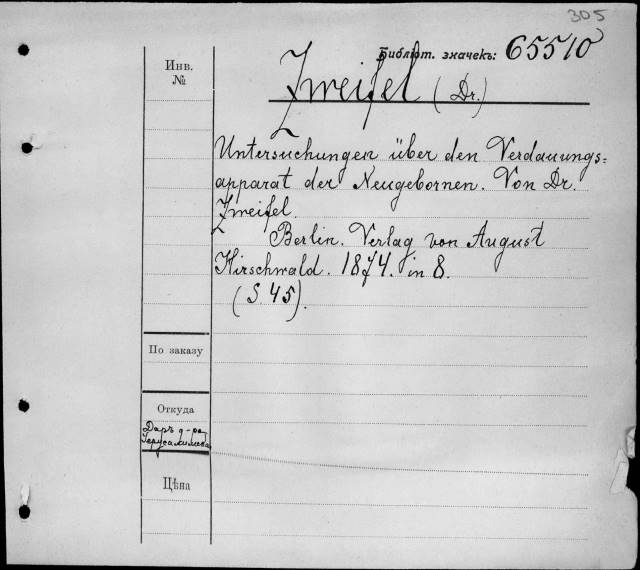 305
Библіот. значекъ: 65510
Инв.
№
Zweifel (Dr.)
Untersuchungen über den Verdauungs=
apparat der Neugebornen. Von Dr.
Zweifel.
Berlin. Verlag von August
Hirschwald. 1874. in 8.
(S. 45).
По заказу
Откуда
Даръ д-ра
Іерусалимова
Цѣна